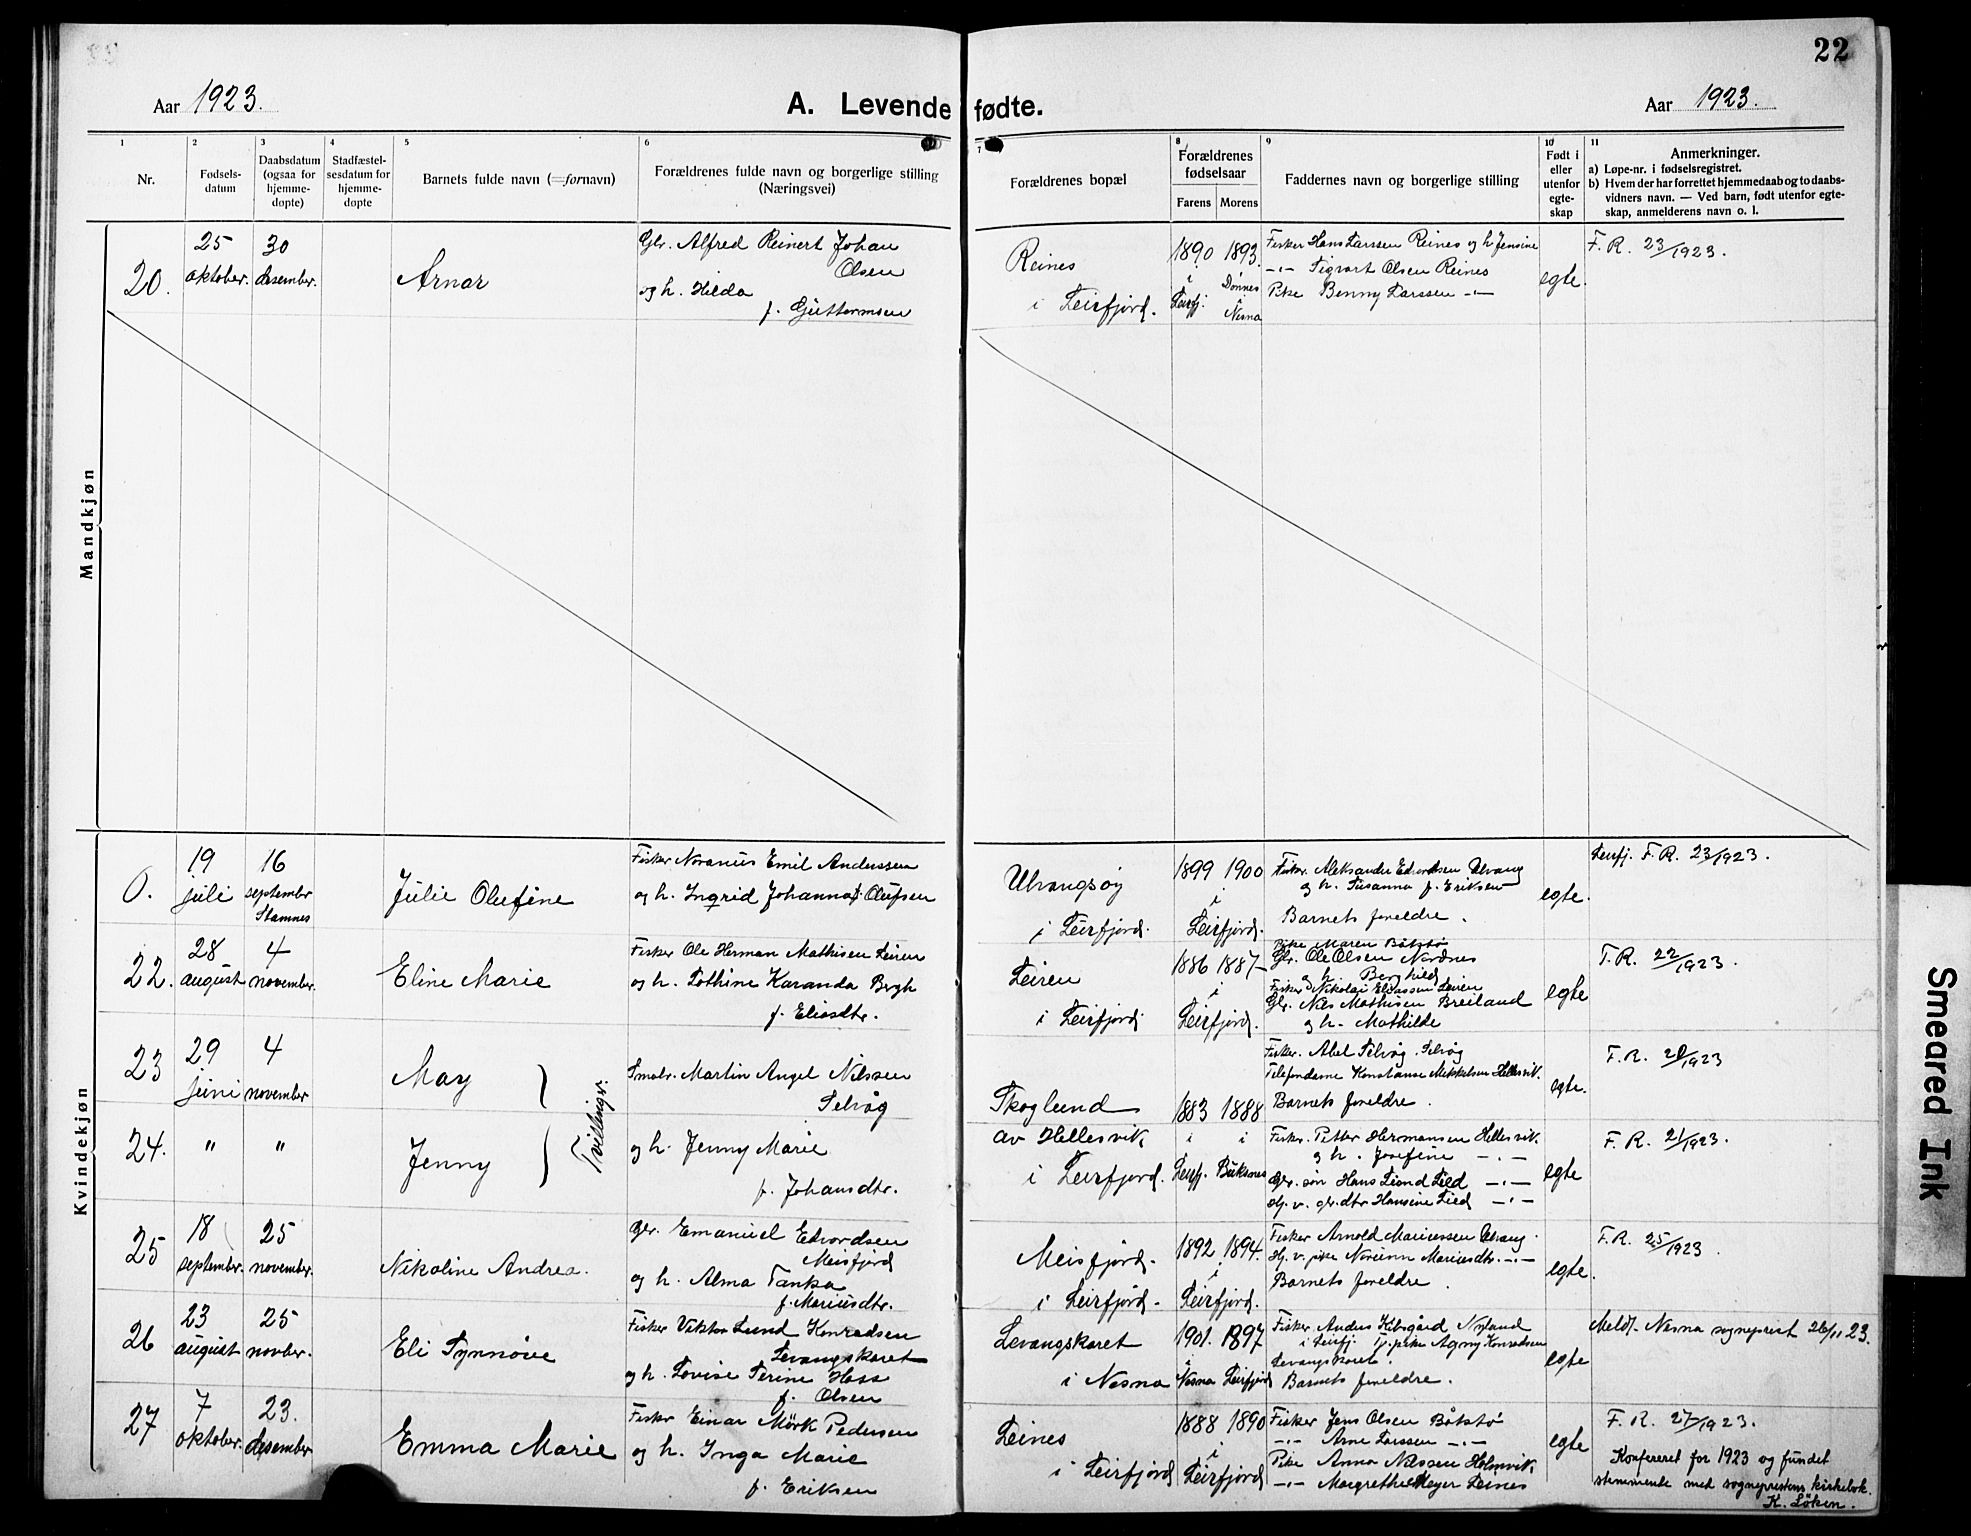 22
Aar 1923.
A. Levende fødte.
Aar 1923.
1
2
3
4
5
6
7
8
9
10
11
Nr.
Fødsels-
datum
Daabsdatum
(ogsaa for
hjemme-
døpte)
Stadfæstel-
sesdatum for
hjemme-
døpte
Barnets fulde navn (=fornavn)
Forældrenes fulde navn og borgerlige stilling
(Næringsvei)
Forældrenes bopæl
Forældrenes
fødselsaar
Farens
Morens
Faddernes navn og borgerlige stilling
Født i
eller
utenfor
egte-
skap
Anmerkninger.
a) Løpe-nr. i fødselsregistret.
b) Hvem der har forrettet hjemmedaab og to daabs-
vidners navn. — Ved barn, født utenfor egte-
skap, anmelderens navn o. l.
Mandkjøn
20.
25 oktober.
30 desember.
Arnar
Gbr. Alfred Reinert Johan
Olsen
og h. Hilda
f. Guttormsen
Reines
i Leirfjord.
1890 i Leirfj.
1893. Dønnes i Nesna
Fisker Hans Larssen Reines og h. Jensine
-"- Sigvart Olsen Reines
Pike Benny Larssen -"-
egte.
F. R. 23/1923.
Kvindekjøn
0.
19 juli
16 september Stamnes
Julie Olufine
Fisker Noranius Emil Anderssen
og h. Ingrid Johanna f. Olufsen
Ulvangsøy
i Leirfjord.
1899 1900
i
Leirfjord.
Fisker. Aleksander Edvardsen Ulvang
og h. Susanna f. Eriksen
Barnets foreldre.
egte.
Leirfj. F. R. 23/1923.
22.
28 august
4 november.
Eline Marie
Fisker Ole Herman Mathisen Leiren
og h. Lothine Karanda Bergh
f. Eliasdtr.
Leiren
i Leirfjord
1886 1887
i
Leirfjord.
Pike Maren Båtstø
Gbr. Ole Olsen Nordnes
og h. Berghild
Fisker Nikolai Eliassen Leiren
Gbr. Nils Mathisen Breiland
og h. Mathilde
egte
F. R. 22/1923.
23
29 juni
4 november
May
Smabr. Martin Angel Nilssen
Selvåg
Skoglund
av Hellesvik
i Leirfjord.
1883 1888
i i
Leirfj. Buksnes
Fisker. Abel Selvåg. Selvåg
Telefondame Konstanse Mikkelsen Hellesvik.
Barnets foreldre.
egte.
F. R. 20/1923
24.
" "
Jenny
Tvillinger.
og h. Jenny Marie
f. Johansdtr.
Fisker. Petter Hermansen Hellesvik.
og h. Josefine -"-
Gbr. søn Hans Lied -"-
Hj. v. gbr.dtr Hansine Lied -"-
egte
F. R. 21/1923.
25
18 september.
25 november.
Nikoline Andrea.
Gbr. Emanuel Edvardsen
Meisfjord
og h. Alma Tanka
f. Mariusdtr.
Meisfjord.
i Leirfjord.
1892 1894.
i
Leirfjord.
Fisker Arnold Mariussen Ulvang.
Hj. v. pike Mariusdtr. -"-
Barnets foreldre.
egte.
F. R. 25/1923.
26
23 august
25 novber.
Eli Synnøve
Fisker Viktor Lund Konradsen
Levangskaret
og h. Lovise Serine Hass
f. Olsen
Levangskaret
i Nesna
1901. 1897
i
Nesna Leirfjord
Fisker Anders Kibsgård Nyland
i Leirfj. Tj. pike Agny Konradsen
Levangskaret.
Barnets foreldre.
egte
Meldt Nesna sogneprest 26/11 23.
27
7 oktober.
23. desember
Emma Marie
Fisker Einar Mørk Pedersen
og h. Inga Marie
f. Eriksen
Leines
i Leirfjord
1888 1890
i
Leirfjord
Fisker Jens Olsen Båtstø
-"- Arne Larssen -"-
Pike Anna Nilssen Holmvik
-"- Margrethe Meyer Leines
egte
F. R. 27/1923.
Konfereret for 1923 og fundet
stemmende med sogneprestens kirkebok.
K. Løken.
Smeared Ink